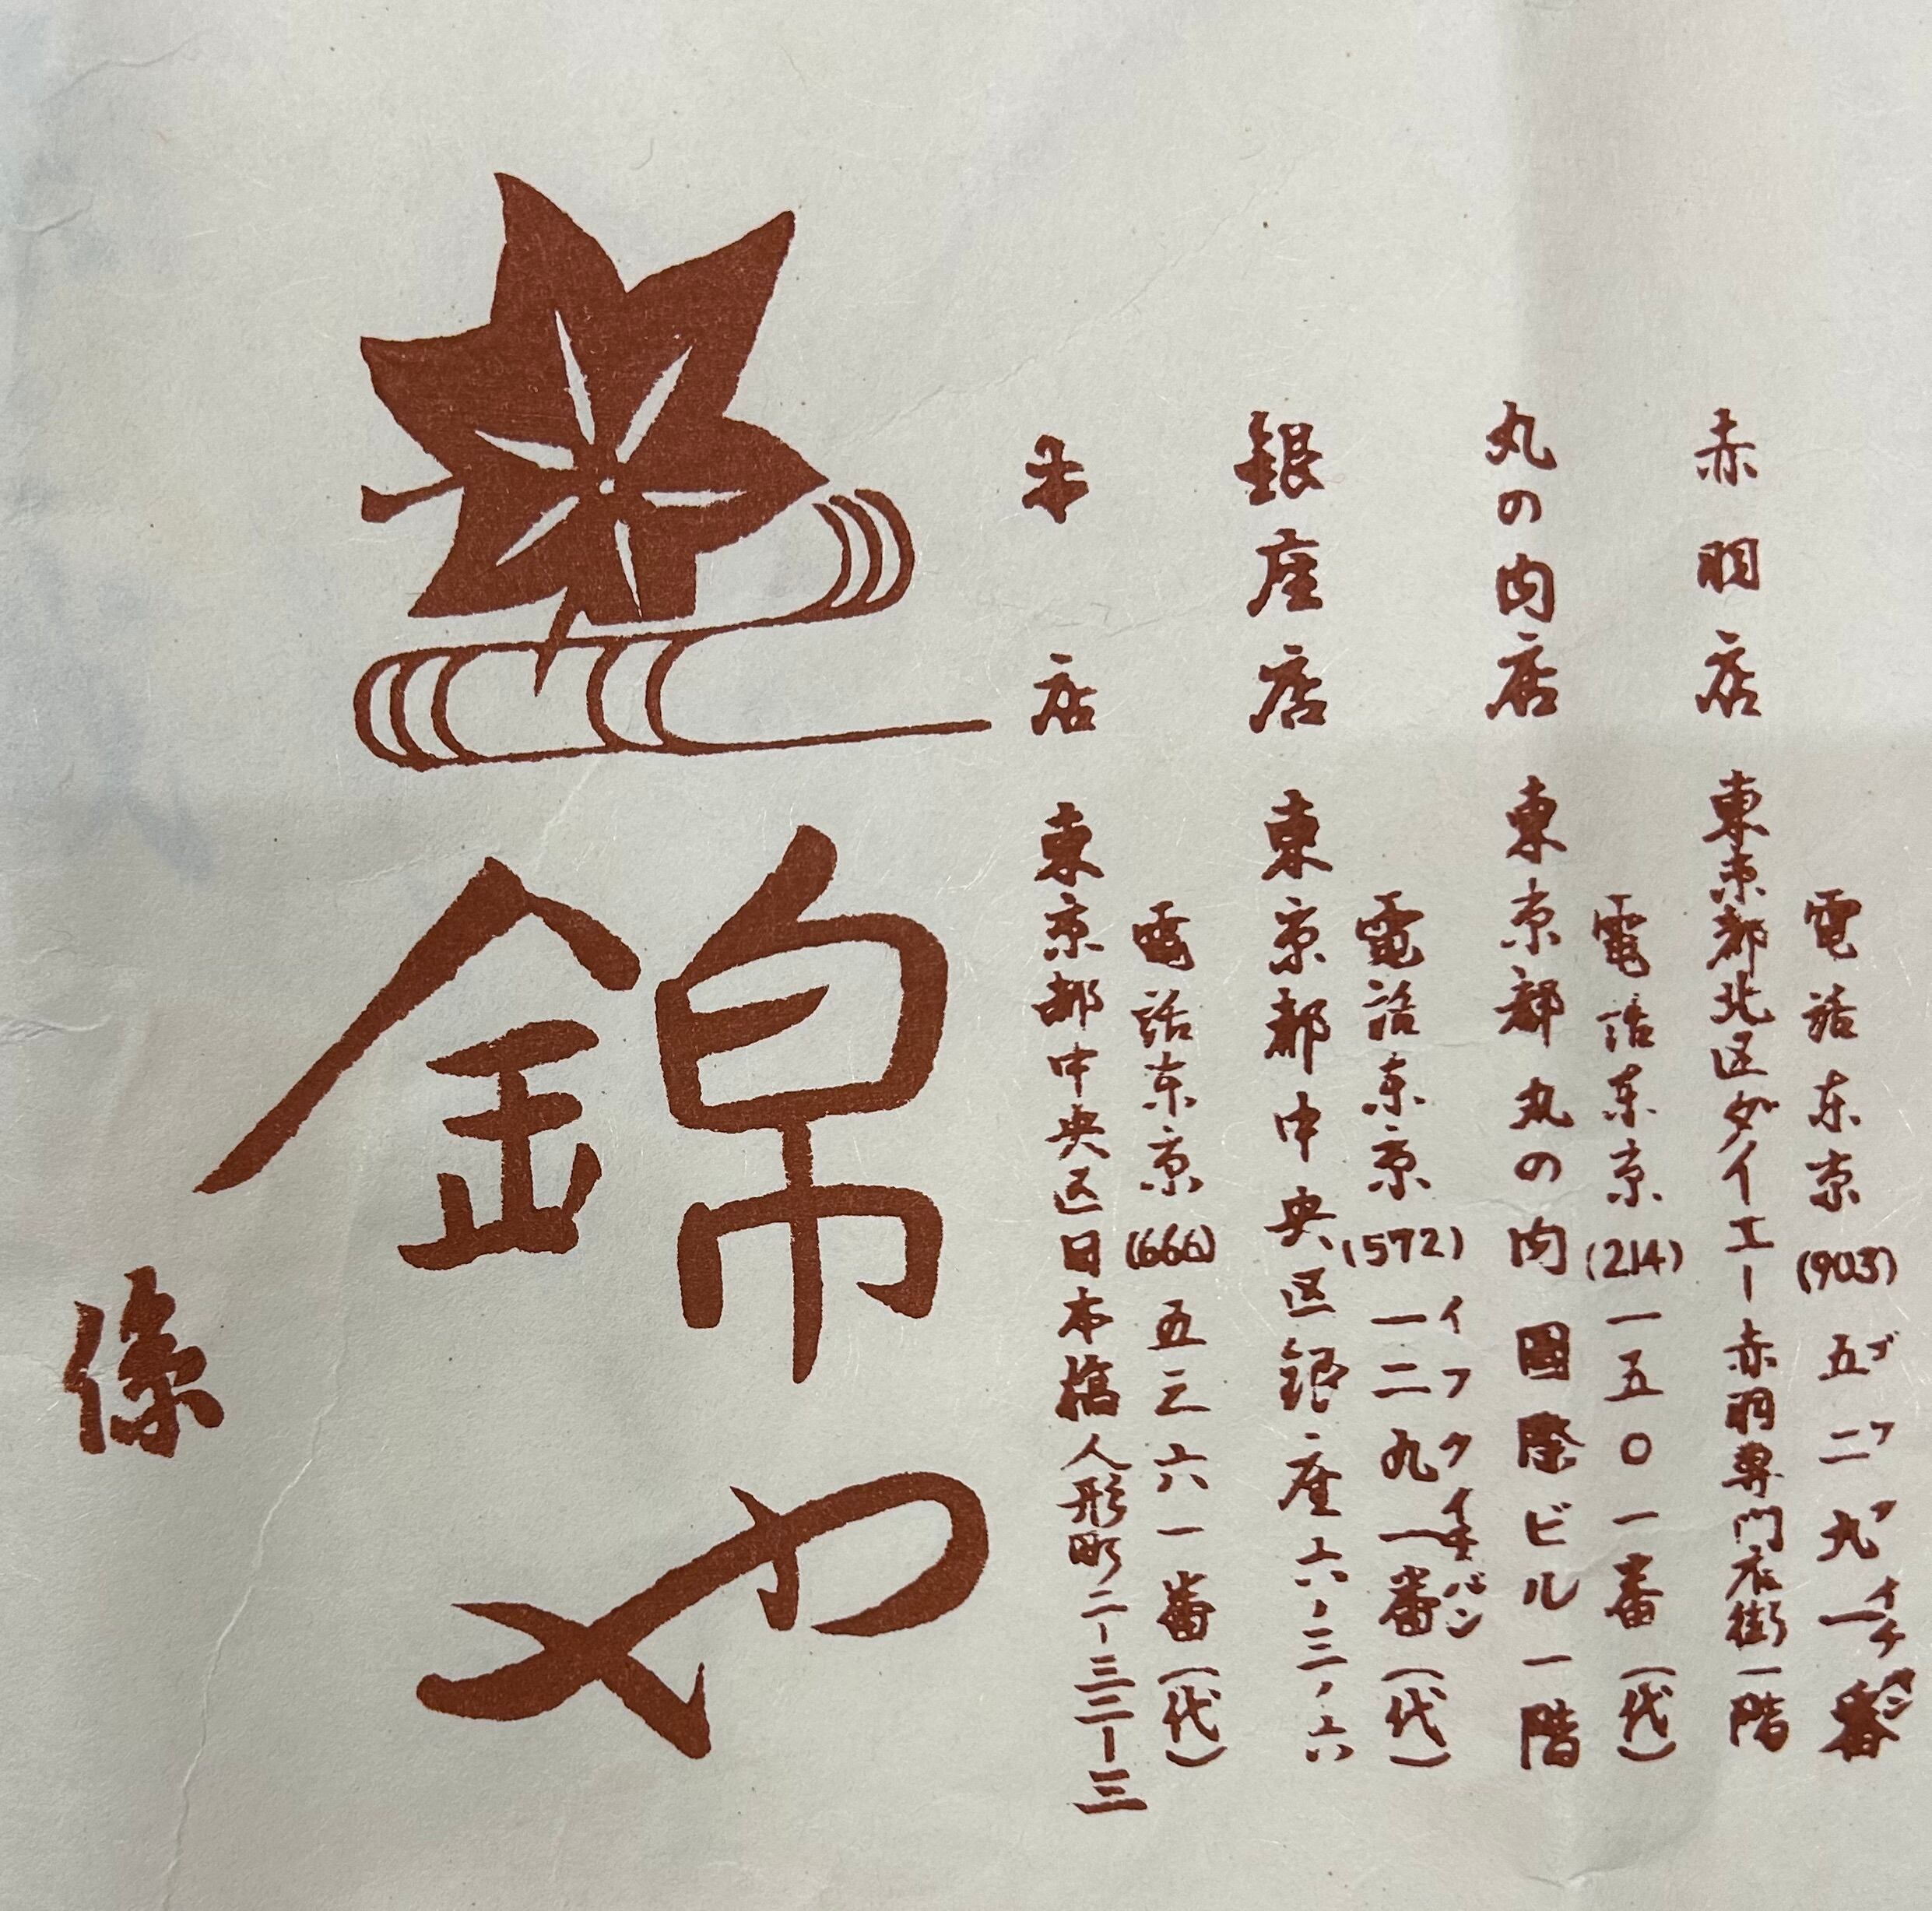 錦や
係
本店 東京都中央区日本橋人形町二-三二-三
電話東京(666)五三六一番(代)
銀座店 東京都中央区銀座六ノ三ノ六
電話東京(572)一二九一番(代)
イフクイチバン
丸の内店 東京都丸の内國際ビル一階
電話東京(214)一五〇一番(代)
赤羽店 東京都北区ダイエー赤羽専門店街一階
電話東京(903)五二九一番
ゴフクイチバン